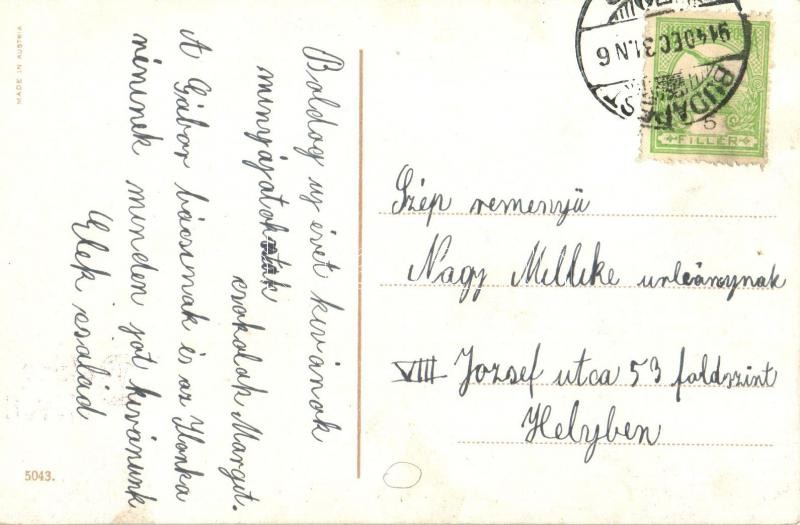 MADE IN AUSTRIA
Boldog uj évet kivánok
minyájatoknak
csokolah Margit.
A Gábor bácsinak és az Ilonka
néninek minden jot kivánunk
Elek család
5043.
914 DEC 31. N6
BUDAPEST
5
FILLER
Szép remenyü
Nagy Melleke urleánynak
VIII Jozsef utca 53 foldszint
Helyben